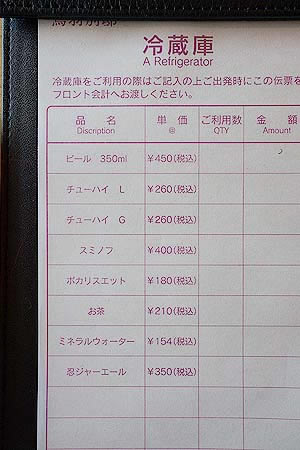 鳥羽別邸
冷蔵庫
A Refrigerator
冷蔵庫をご利用の際はご記入の上ご出発時にこの伝票を
フロント会計へお渡しください。
品 名 単 価 ご利用数 金 額
Discription @ QTY Amount
ビール 350ml ¥450(税込)
チューハイ L ¥260(税込)
チューハイ G ¥260(税込)
スミノフ ¥400(税込)
ポカリスエット ¥180(税込)
お茶 ¥210(税込)
ミネラルウォーター ¥154(税込)
忍ジャーエール ¥350(税込)